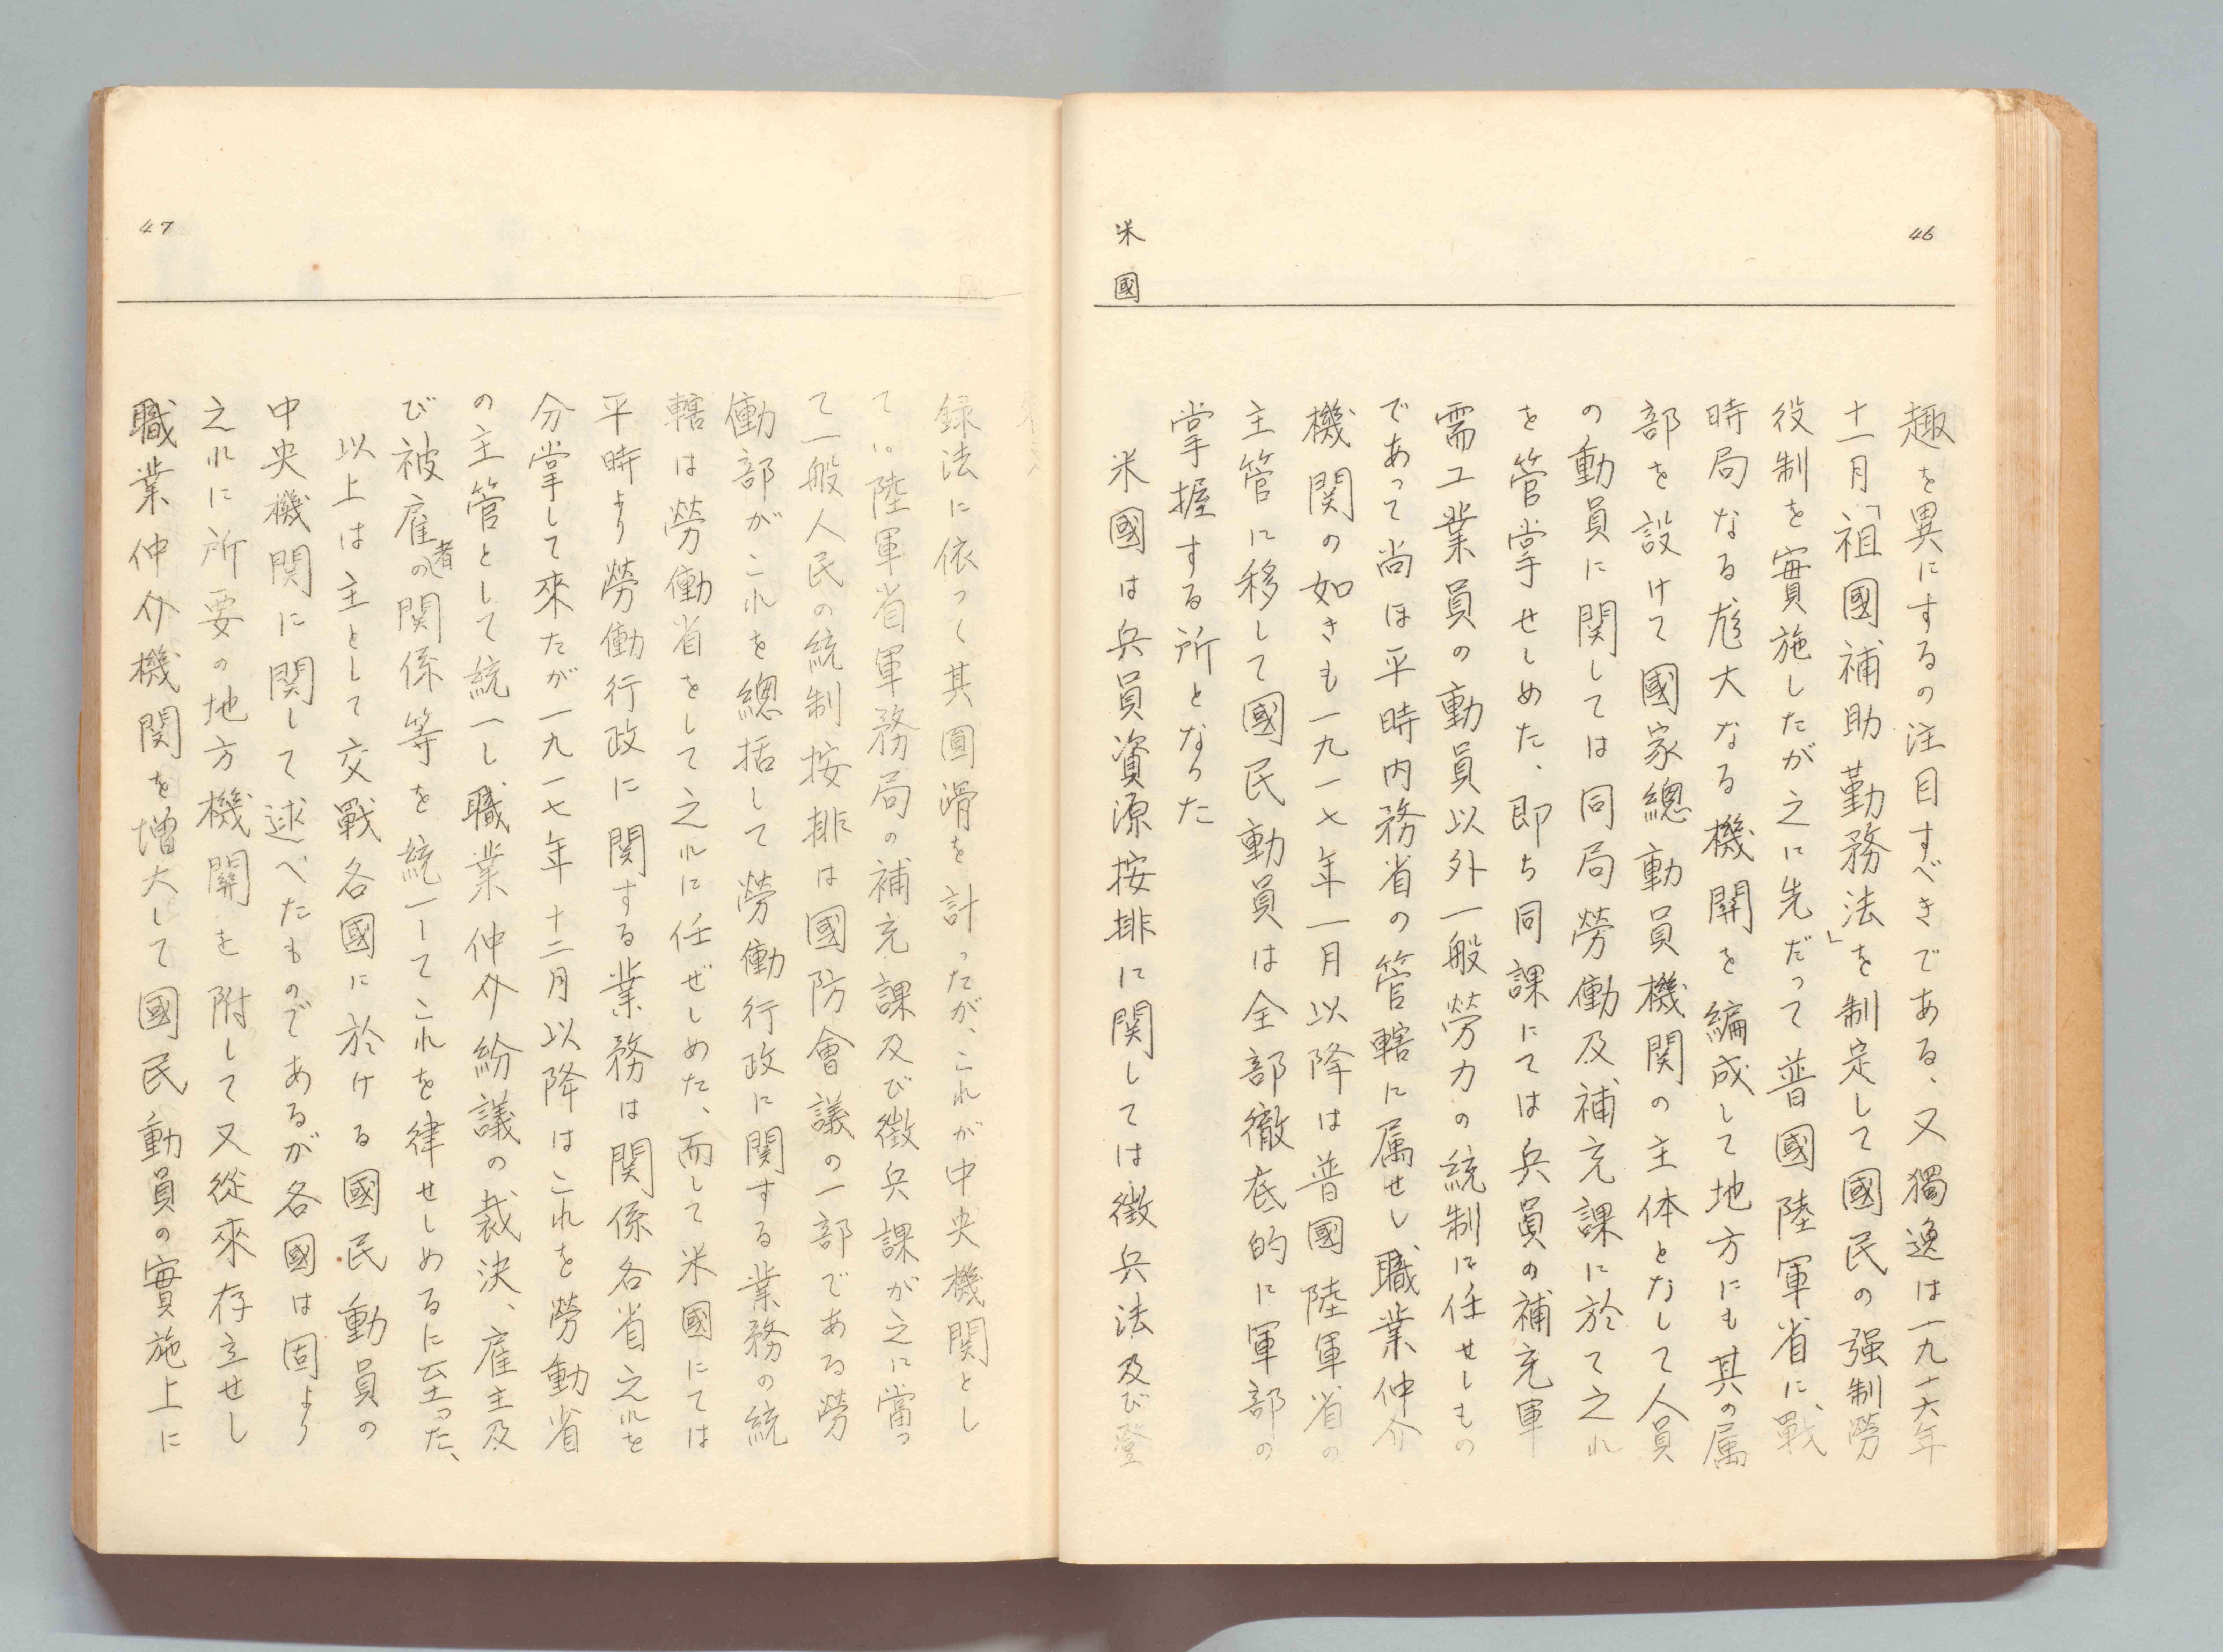 46
趣を異にするの注目すべきである、又獨逸は一九一六年
十一月「祖國補助勤務法」を制定して國民の强制勞
役制を實施したが之に先だつて普國陸軍省に戰
時局なる尨大なる機關を編成して地方にも其の属
部を設けて國家總動員機関の主体となして人員
の動員に関しては同局勞働及補充課に於て之れ
を管掌せしめた、即ち同課にては兵員の補充軍
需工業員の動員以外一般勞力の統制に任せしもの
であつて尚ほ平時内務省の管轄に属せし職業仲介
機関の如きも一九一七年一月以降は普國陸軍省の
主管に移して國民動員は全部徹底的に軍部の
掌握する所となつた
米國
米國は兵員資源按排に関しては徴兵法及び登
47
録法に依つて其圓滑を計つたが、これが中央機関とし
ては陸軍省軍務局の補充課及び徴兵課が之に當つ
て一般人民の統制按排は國防會議の一部である勞
働部がこれを總括して勞働行政に関する業務の統
轄は勞働省をして之れに任ぜしめた、而して米國にては
平時より勞働行政に関する業務は関係各省之れを
分掌して來たが一九一七年十二月以降はこれを勞動省
の主管として統一し職業仲介紛議の裁決、雇主及
び被雇者の関係等を統一してこれを律せしめるに至つた、
以上は主として交戰各國に於ける國民動員の
中央機関に関して逑べたものであるが各國は固より
之れに所要の地方機關を附して又從來存立せし
職業仲介機関を増大して國民動員の實施上に